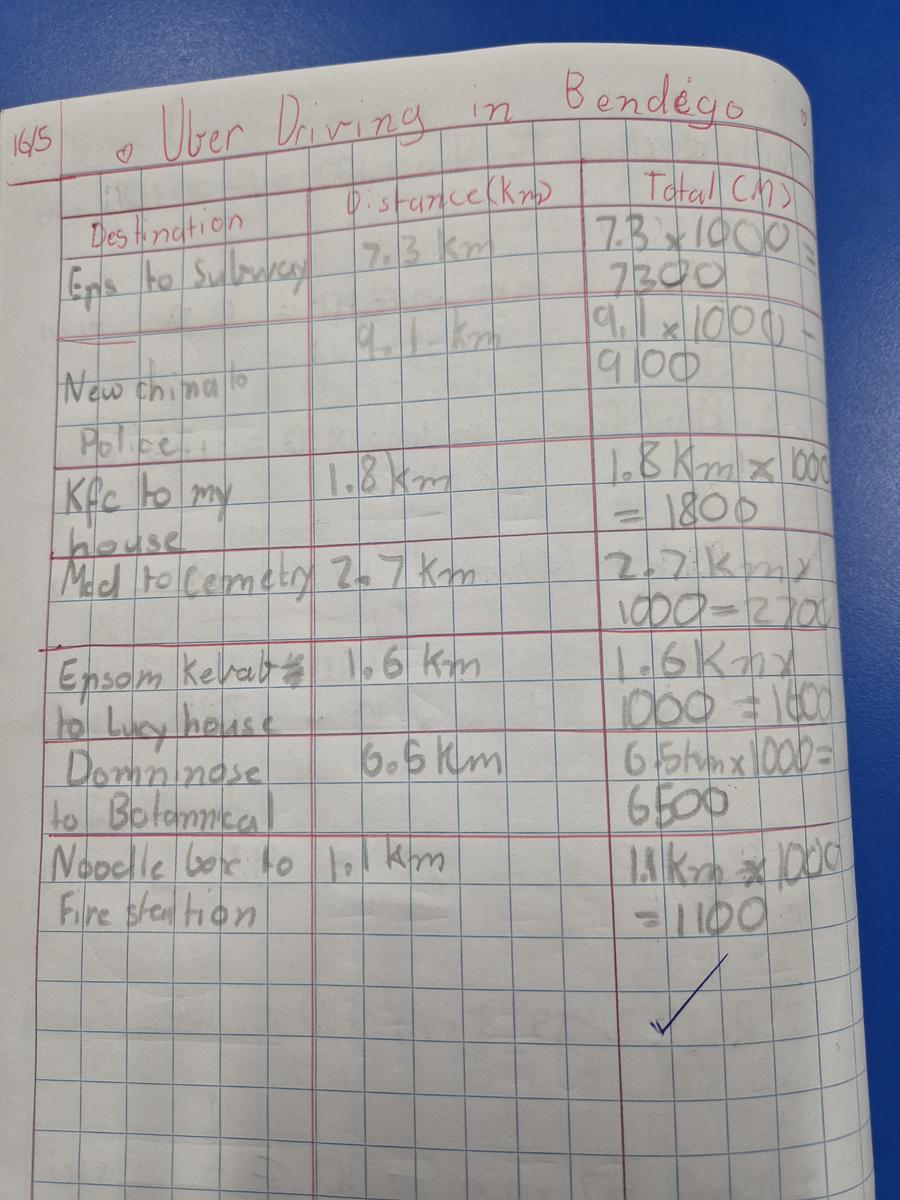 16/5
Uber Driving in Bendégo
Destination Distance(Km) Total (M)
Eps to Subway 7.3 km 7.3 x 1000 =
7300
9.1 km 9.1 x 1000 =
New china to 9100
Police
Kfc to my 1.8 km 1.8 Km x 1000
house = 1800
Mcd to Cemetry 2.7 Km 2.7 Km x
1000 = 2700
Epsom Kebab 1.6 Km 1.6 Km x
to Lucy house 1000 = 1600
Domn nose 6.5 Km 6.5 Km x 1000 =
to Botannical 6500
Noodle box to 1.1 km 1.1 Km x 1000
Fire station = 1100